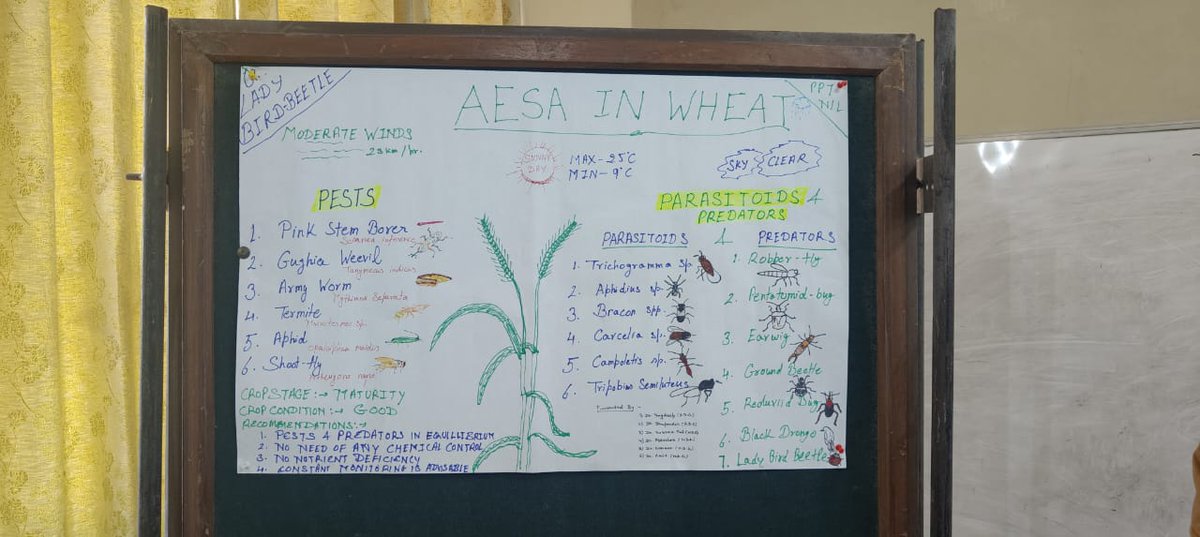 LADY
BIRD-BEETLE
AESA IN WHEAT
PPT
NIL
MODERATE WINDS
23 km/hr.
SUNNY
DAY
MAX-25°C
MIN-9°C
SKY CLEAR
PESTS
1. Pink Stem Borer
2. Gughia Weevil
Tanymecus indicus
3. Army Worm
Mythimna Separata
4. Termite
5. Aphid
6. Shoot-fly
CROP STAGE :→ MATURITY
CROP CONDITION :→ GOOD
RECOMMENDATIONS:→
1. PESTS & PREDATORS IN EQUILLIBRIUM
2. NO NEED OF ANY CHEMICAL CONTROL
3. NO NUTRIENT DEFICIENCY
4. CONSTANT MONITORING IS ADVISABLE
PARASITOIDS &
PREDATORS
PARASITOIDS &
1. Trichogramma sp.
2. Aphidius sp.
3. Bracon spp.
4. Carcelia sp.
5. Campoletis sp.
6. Tripobius Semiluteus
Presented By :-
PREDATORS
1. Robber-fly
2. Pentatomid-bug
3. Earwig
4. Ground Beetle
5. Reduviid Bug
6. Black Drongo
7. Lady Bird Beetle